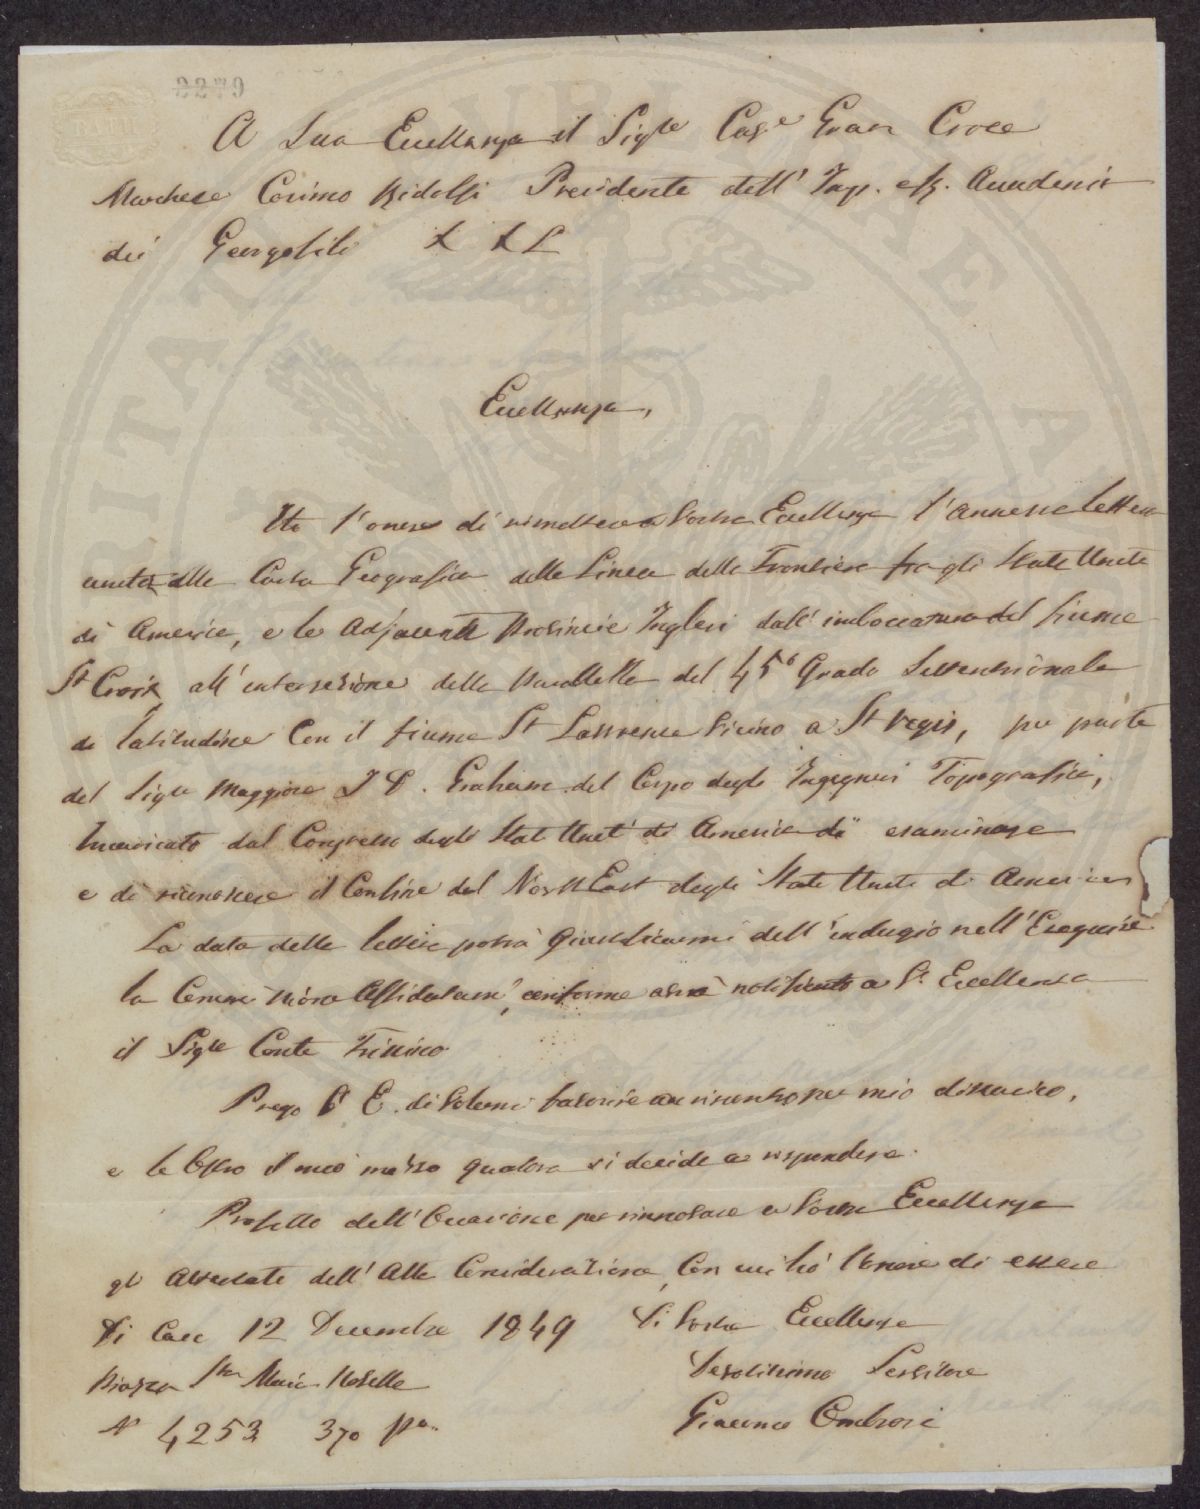 2279
A Sua Eccellenza il Sigre Cave Gran Croce
Marchese Cosimo Ridolfi Presidente dell' Imp. e R. Accademia
dei Georgofili
Eccellenza,
Ho l'onore di rimettere a Vostra Eccellenza l'annessa lettera
unita alla Carta Geografica della Linea della Frontiera fra gli Stati Uniti
di America, e le adjacenti Provincie Inglesi dall' imboccatura del fiume
St Croix all' intersezione della Parallella del 45º Grado Settentrionale
di latitudine con il fiume St Lawrence vicino a St Regis, per parte
del Sigre Maggiore J D. Graham del Corpo degli Ingegneri Topografici,
Incaricato dal Congresso degli Stati Uniti di America di esaminare
e di riconoscere il Confine del North East degli Stati Uniti di America
La data della lettera potrà giustificarmi dell' indugio nell' Eseguire
la Commissione Affidatami, conforme avrà notificato a V. Eccellenza
il Sigre Conte Frissino
Prego V E. di volermi favorire un riscontro per mio discarico,
e le Offro il mio mezzo qualora si decida a rispondere.
Profitto dell' Occasione per rinnovare a Vostra Eccellenza
gli attestati dell' Alta Considerazione, Con cui ho l'onore di essere
Di Casa 12 Decembre 1849
Di Vostra Eccellenza
Piazza Sta Maria Novella
Devotissimo Servitore
N 4253 3zo po
Giacomo Ombrosi